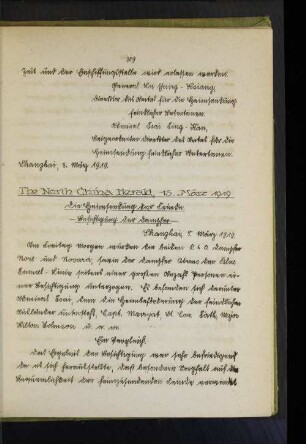 109
Zeit und der Einschiffungsstelle wird erlassen werden.
General Wu Hsing-Hsiang,
Direktor des Amtes für die Heimsendung
feindlicher Untertanen.
Admiral Tsai Ting-Kan,
beigeordneter Direktor des Amtes für die
Heimsendung feindlicher Untertanen.
Shanghai, 8. März 1919.
The North China Herald, 15. März 1919
Die Heimsendung der Feinde
Besichtigung der Dampfer
Shanghai, 8. März 1919.
Am Freitag Morgen wurden die beiden P. & O. Dampfer
Nore und Novara, sowie der Dampfer Atreus der Blue
Funnel-Linie seitens einer großen Anzahl Personen einer
Besichtigung unterzogen. Es befanden sich darunter
Admiral Tsai, dem die Heimbeförderung der feindlichen
Ausländer untersteht, Capt.
Hilton Johnson u. a. m.
Ein Vergleich.
Das Ergebnis der Besichtigung war sehr befriedigend,
da es sich herausstellte, daß besondere Sorgfalt auf die
Bequemlichkeit der heimzusendenden Leute verwendet